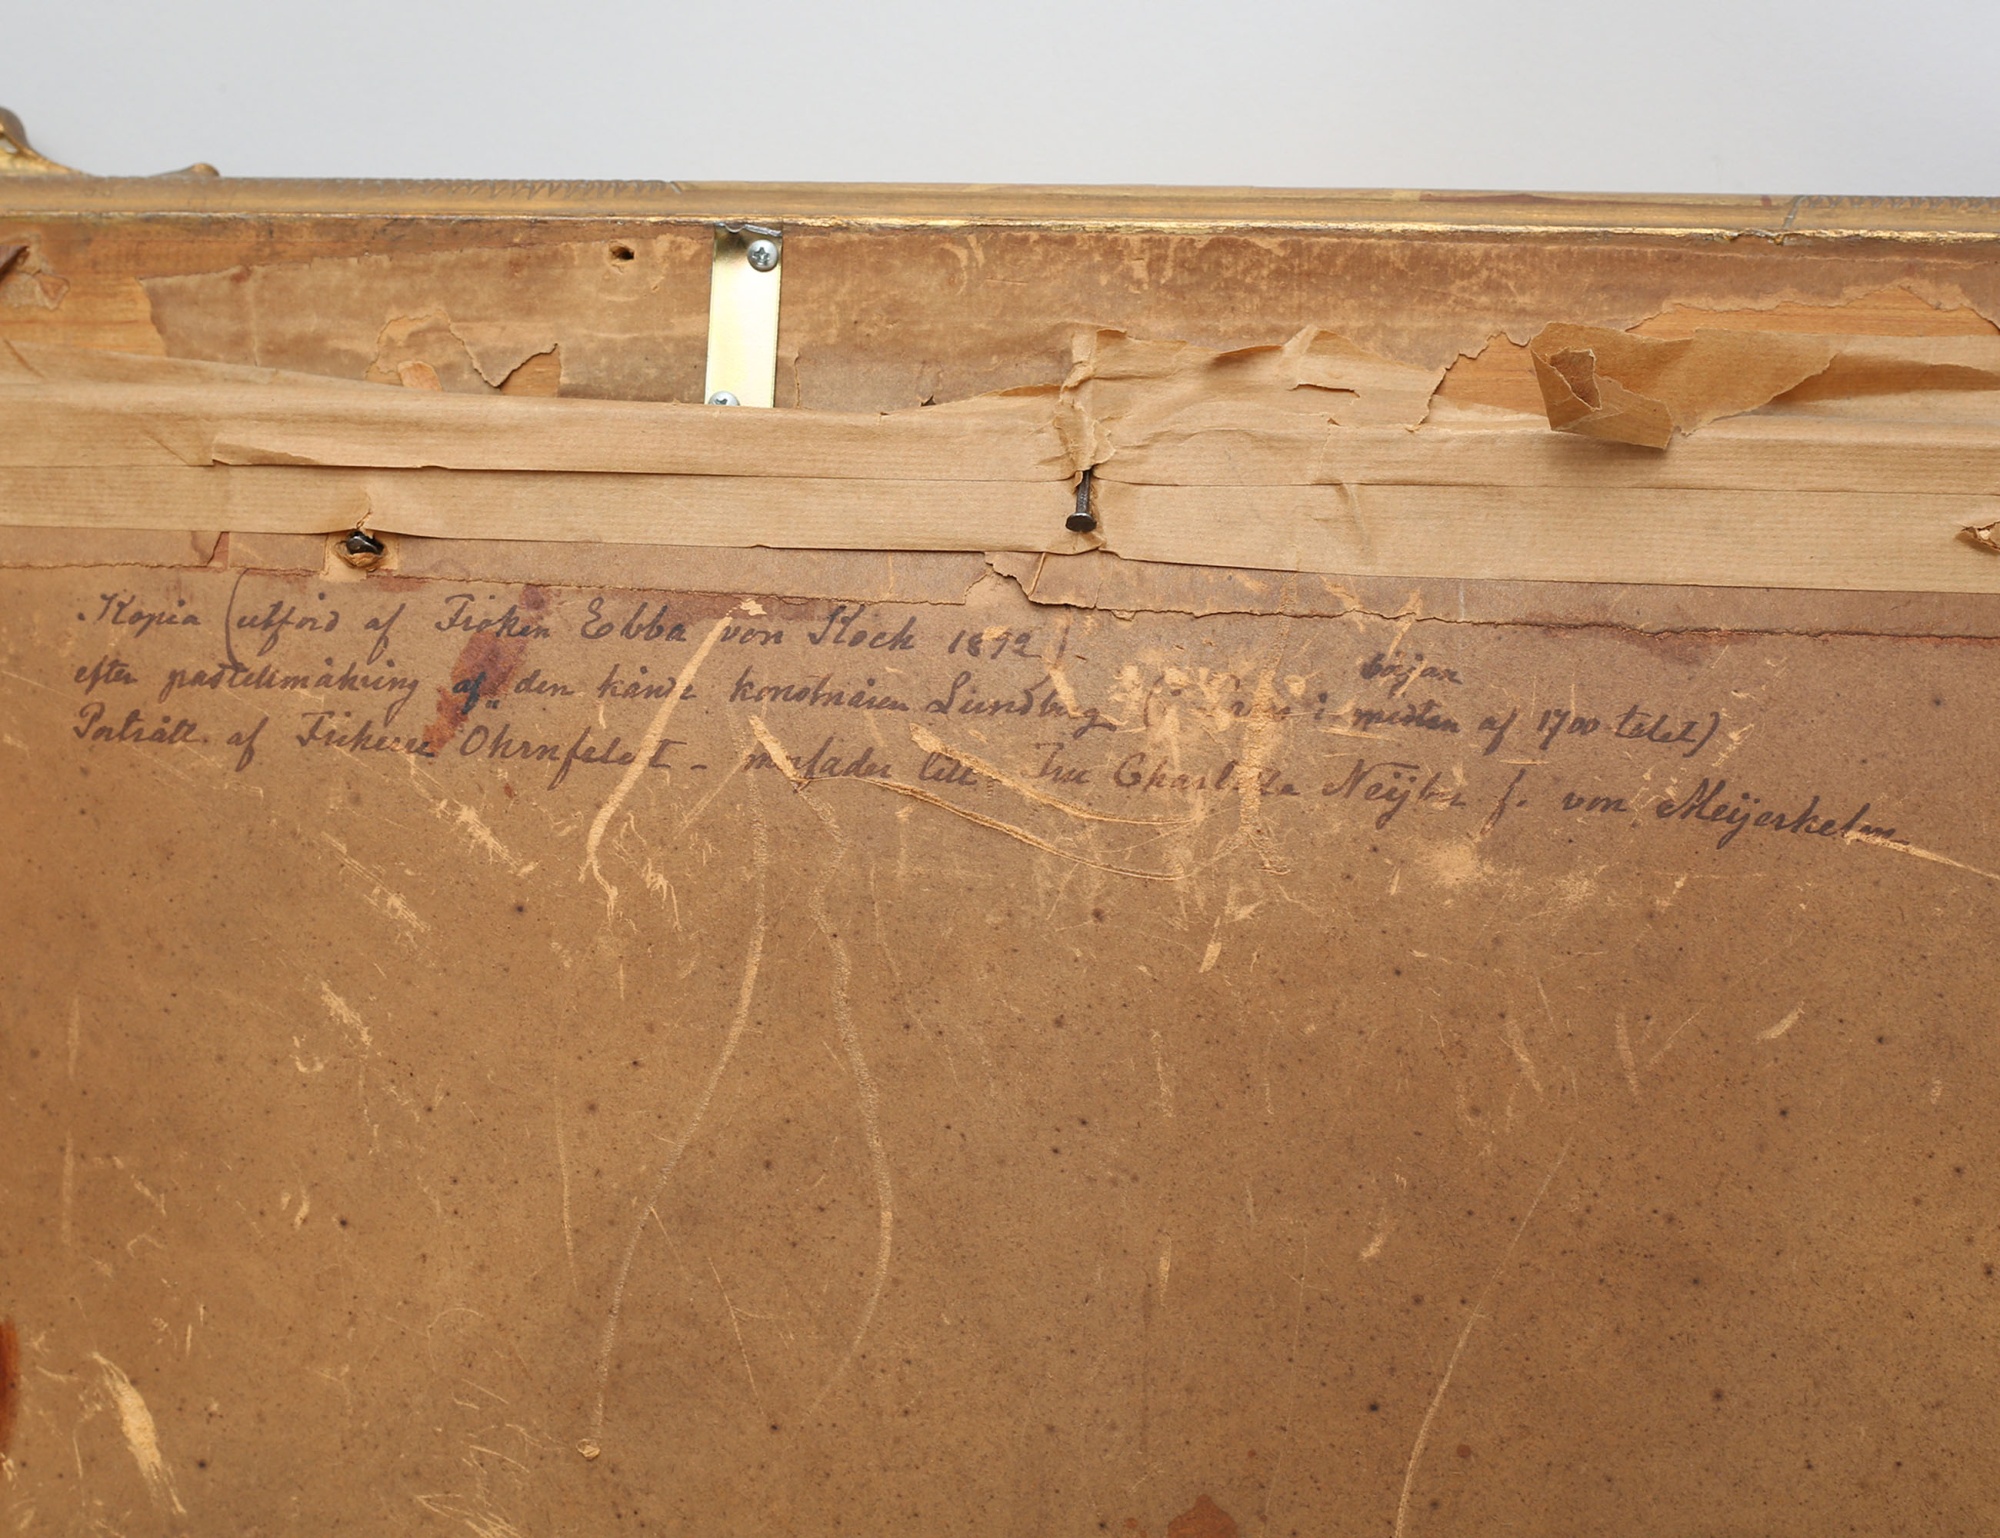 Kopia (utförd af Fröken Ebba von Koch 1892).
början
efter pastellmålning af den kände konstnären Lundberg i midten af 1700 talet)
Porträtt af Friherre Öhrnfeldt - morfader till Fru Charlotta Neijber f. von Meijerhelm